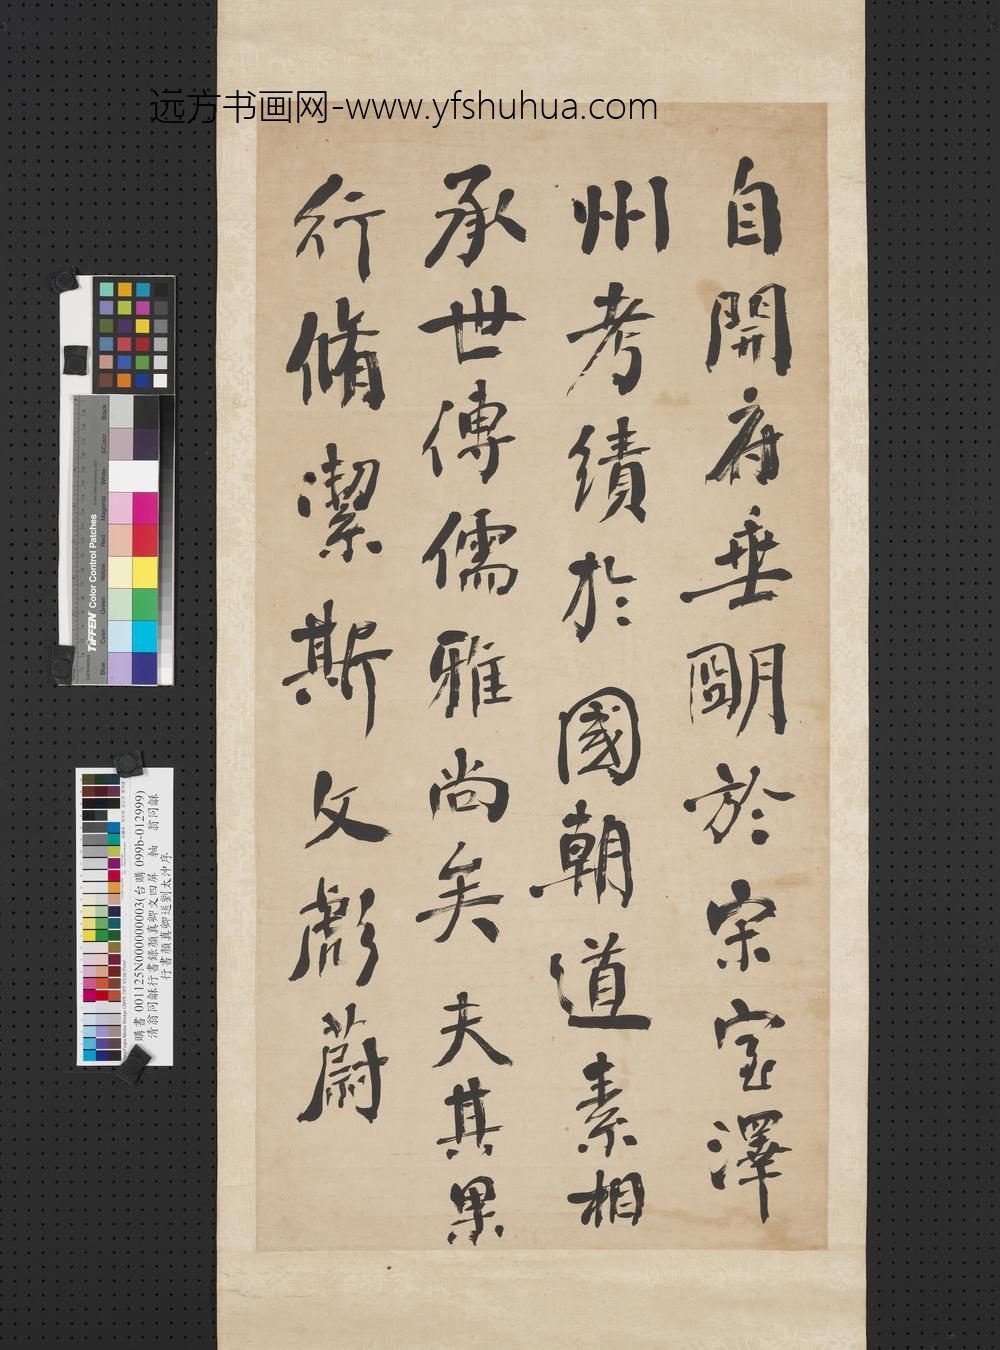 远方书画网-www.yfshuhua.com
自開府垂朙於宗室澤
州考績於國朝道素相
承世傳儒雅尚矣夫其果
行脩潔斯文彪蔚
Black
3/Color
White
Magenta
Red
Yellow
Green
Cyan
Blue
TIFFEN Color Control Patches
購書 001125N000000003(台購 099b-012999)
清翁同龢行書錄顏真卿文四屏 軸 翁同龢
行書顏真卿送劉太沖序